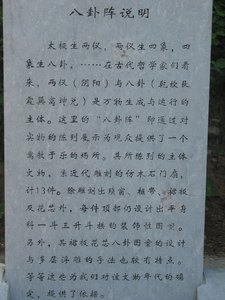 八卦阵说明
太极生两仪，两仪生四象，四
象生八卦，……在古代哲学家们看
来，两仪（阴阳）与八卦（乾坎艮
震巽离坤兑）是万物生成与运行的
主体。这里的“八卦阵”即通过对
实物的陈列展示为观众提供了一个
寓教于乐的场所。其所陈列的主体
文物，是近代雕刻的仿木石门扇，
计13件。除雕刻出頭窗、棍带、裙板
及花芯外，每件顶部仍设计出平身
科一斗三升斗栱的装饰性图案。
另外，其裙板花芯八卦图案的设计
与多层浮雕的手法也较有特点。
等等这些为我们对该文物年代的确
定，提供了依据。